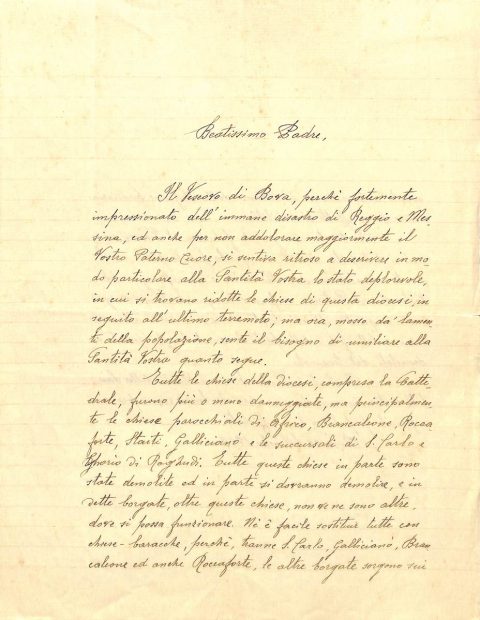 Beatissimo Padre,
Il Vescovo di Bova, perchè fortemente
impressionato dell'immane disastro di Reggio e Mes-
sina, ed anche per non addolorare maggiormente il
Vostro Paterno Cuore, si sentiva ritroso a descrivere in mo-
do particolare alla Santità Vostra lo stato deplorevole,
in cui si trovano ridotte le chiese di questa diocesi, in
seguito all'ultimo terremoto; ma ora, mosso da' lamen-
ti della popolazione, sente il bisogno di umiliare alla
Santità Vostra quanto segue.
Tutte le chiese della diocesi, compresa la Catte-
drale, furono più o meno danneggiate, ma principalmen-
te le chiese parocchiali di Africo, Brancaleone, Rocca
forte, Staiti, Gallicianò e le succursali di S. Carlo e
Ghorio di Roghudi. Tutte queste chiese in parte sono
state demolite ed in parte si dovranno demolire, e in
dette borgate, oltre queste chiese, non ve ne sono altre,
dove si possa funzionare. Nè è facile sostituir tutte con
chiese-baracche, perchè, tranne S. Carlo, Gallicianò, Bran-
caleone ed anche Roccaforte, le altre borgate sorgono sui